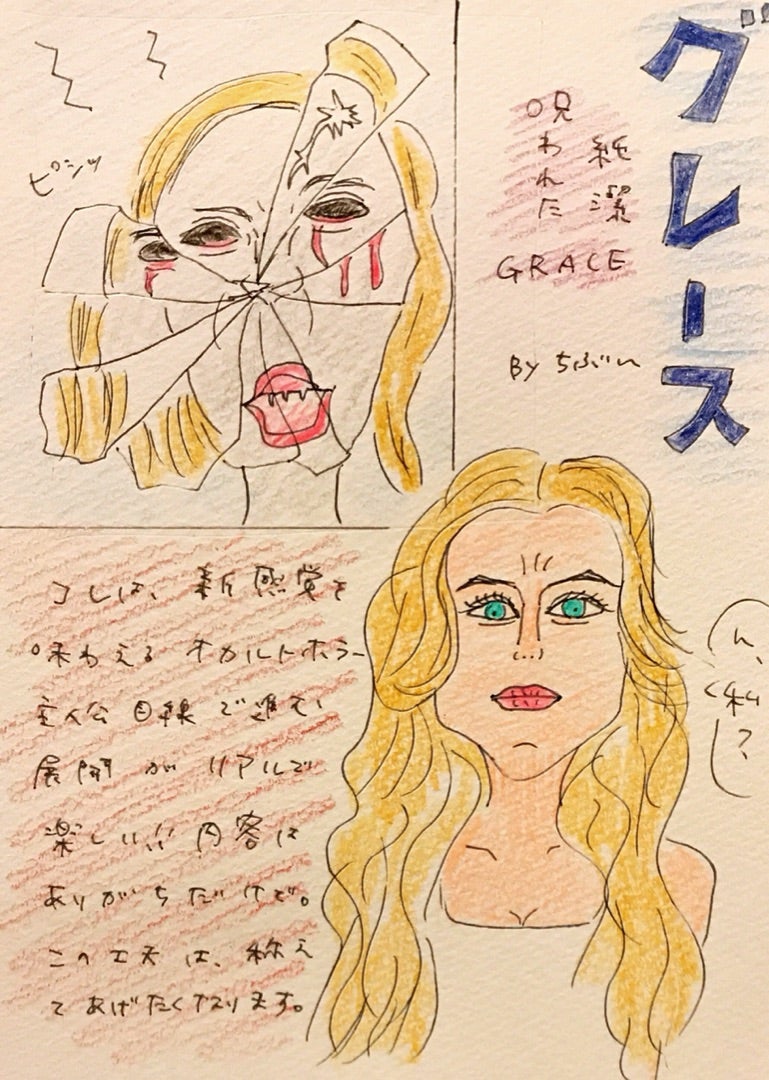 グレース
純潔
呪われた
GRACE
BY ちぶい
ピシッ
コレは、新感覚を
味わえる オカルトホラー
主人公目線で進む
展開がリアルで
楽しい!! 内容は
ありがちだけど。
この工夫は、称え
てあげたくなります。
ん、
私?